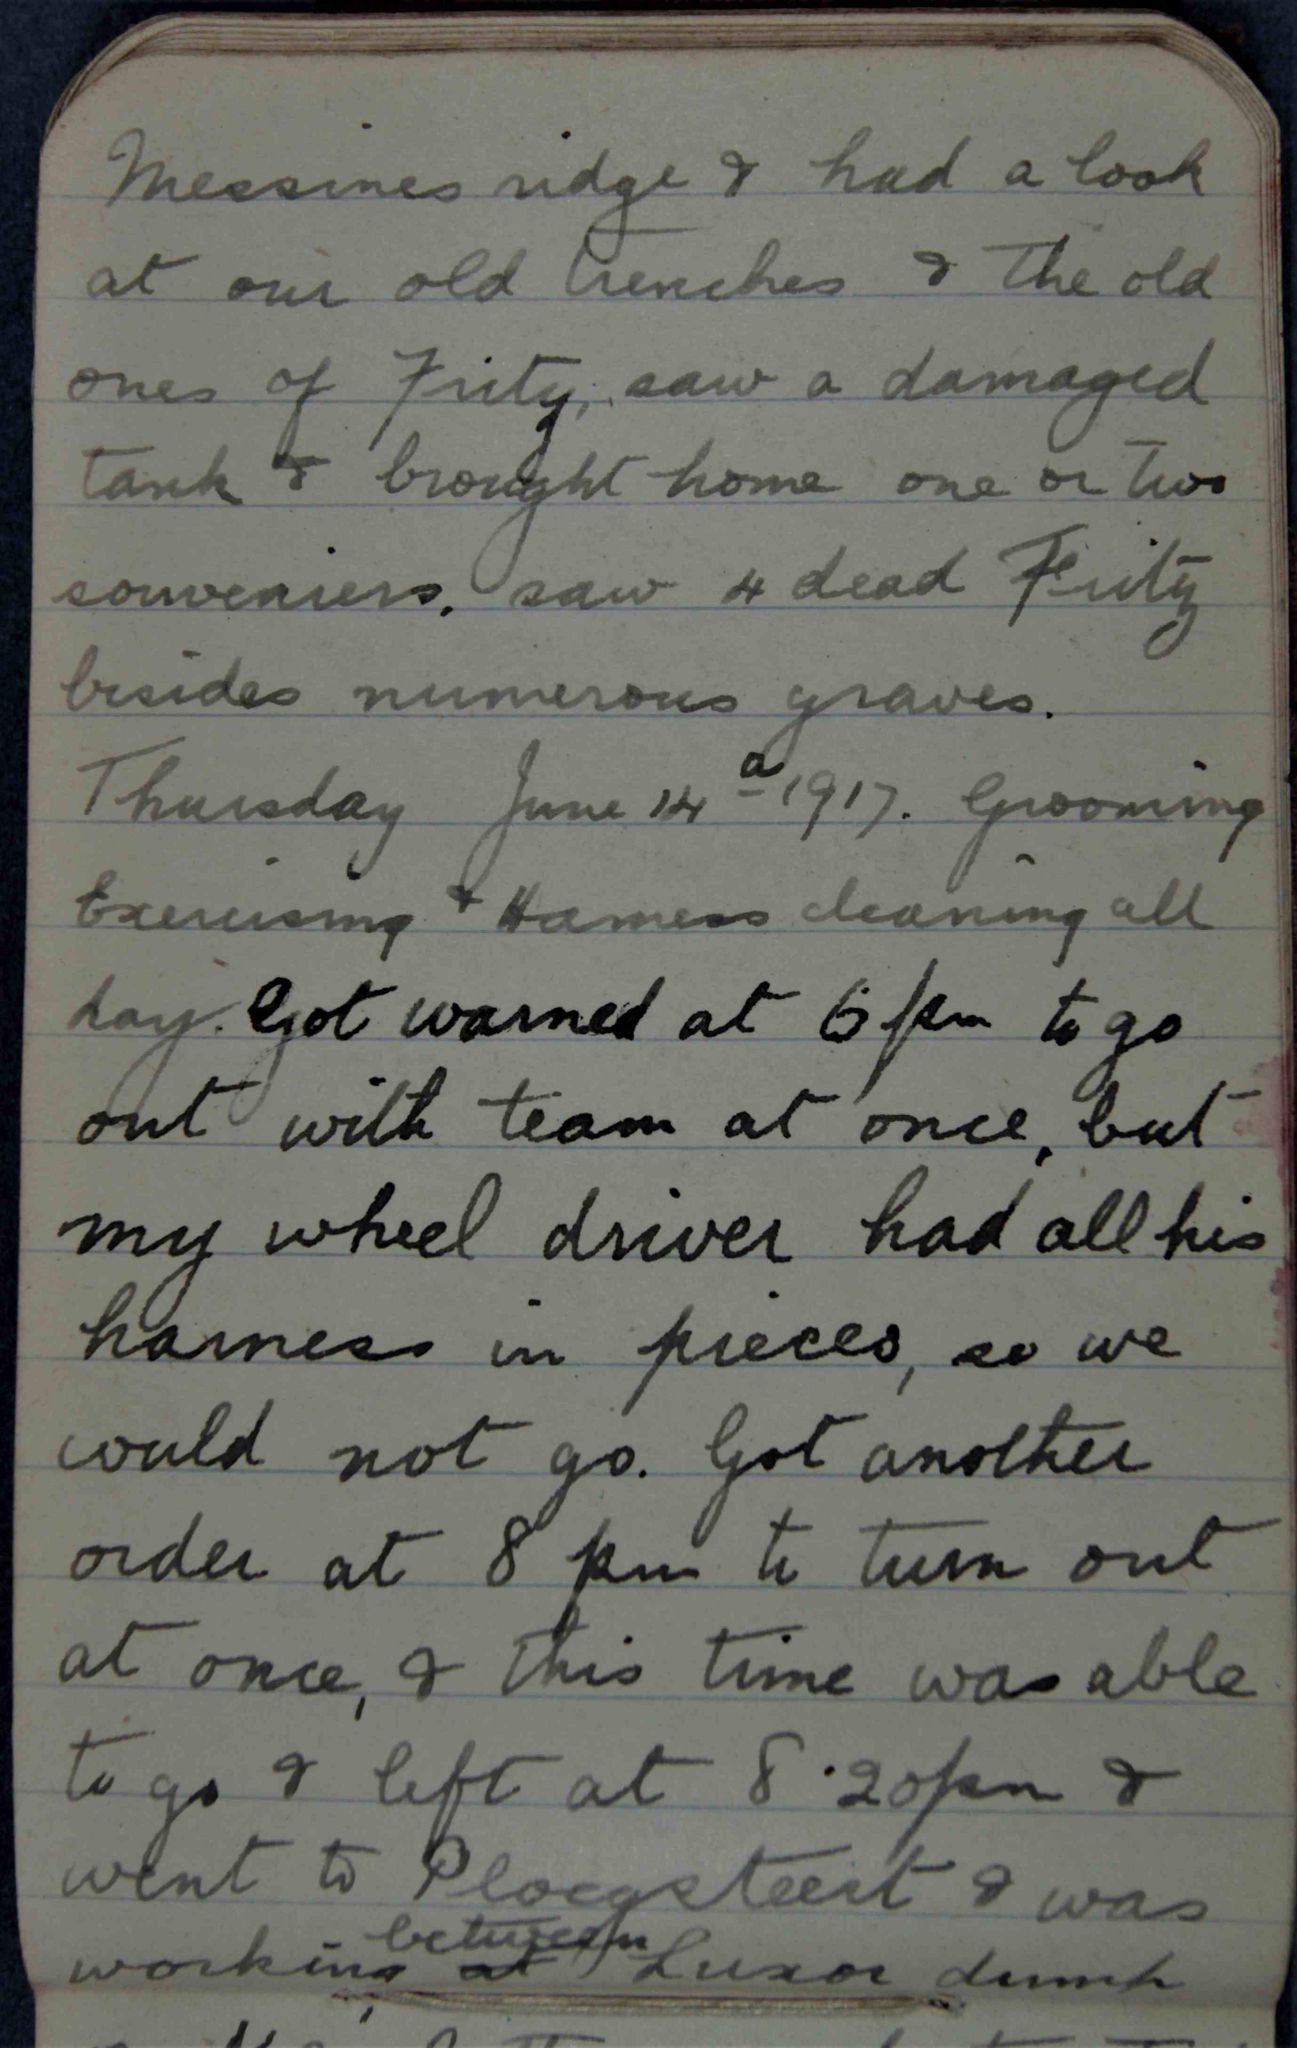 Messines ridge & had a look
at our old trenches & the old
ones of Fritz, saw a damaged
tank & brought home one or two
souveniers. saw 4 dead Fritz
besides numerous graves.
Thursday June 14 a 1917. Grooming
Exercising & Harness cleaning all
day. Got warned at 6 pm to go
out with team at once, but
my wheel driver had all his
harness in pieces, so we
could not go. Got another
order at 8 pm to turn out
at once, & this time was able
to go & left at 8.20pm &
went to Ploegsteert & was
working at between Luxor dump